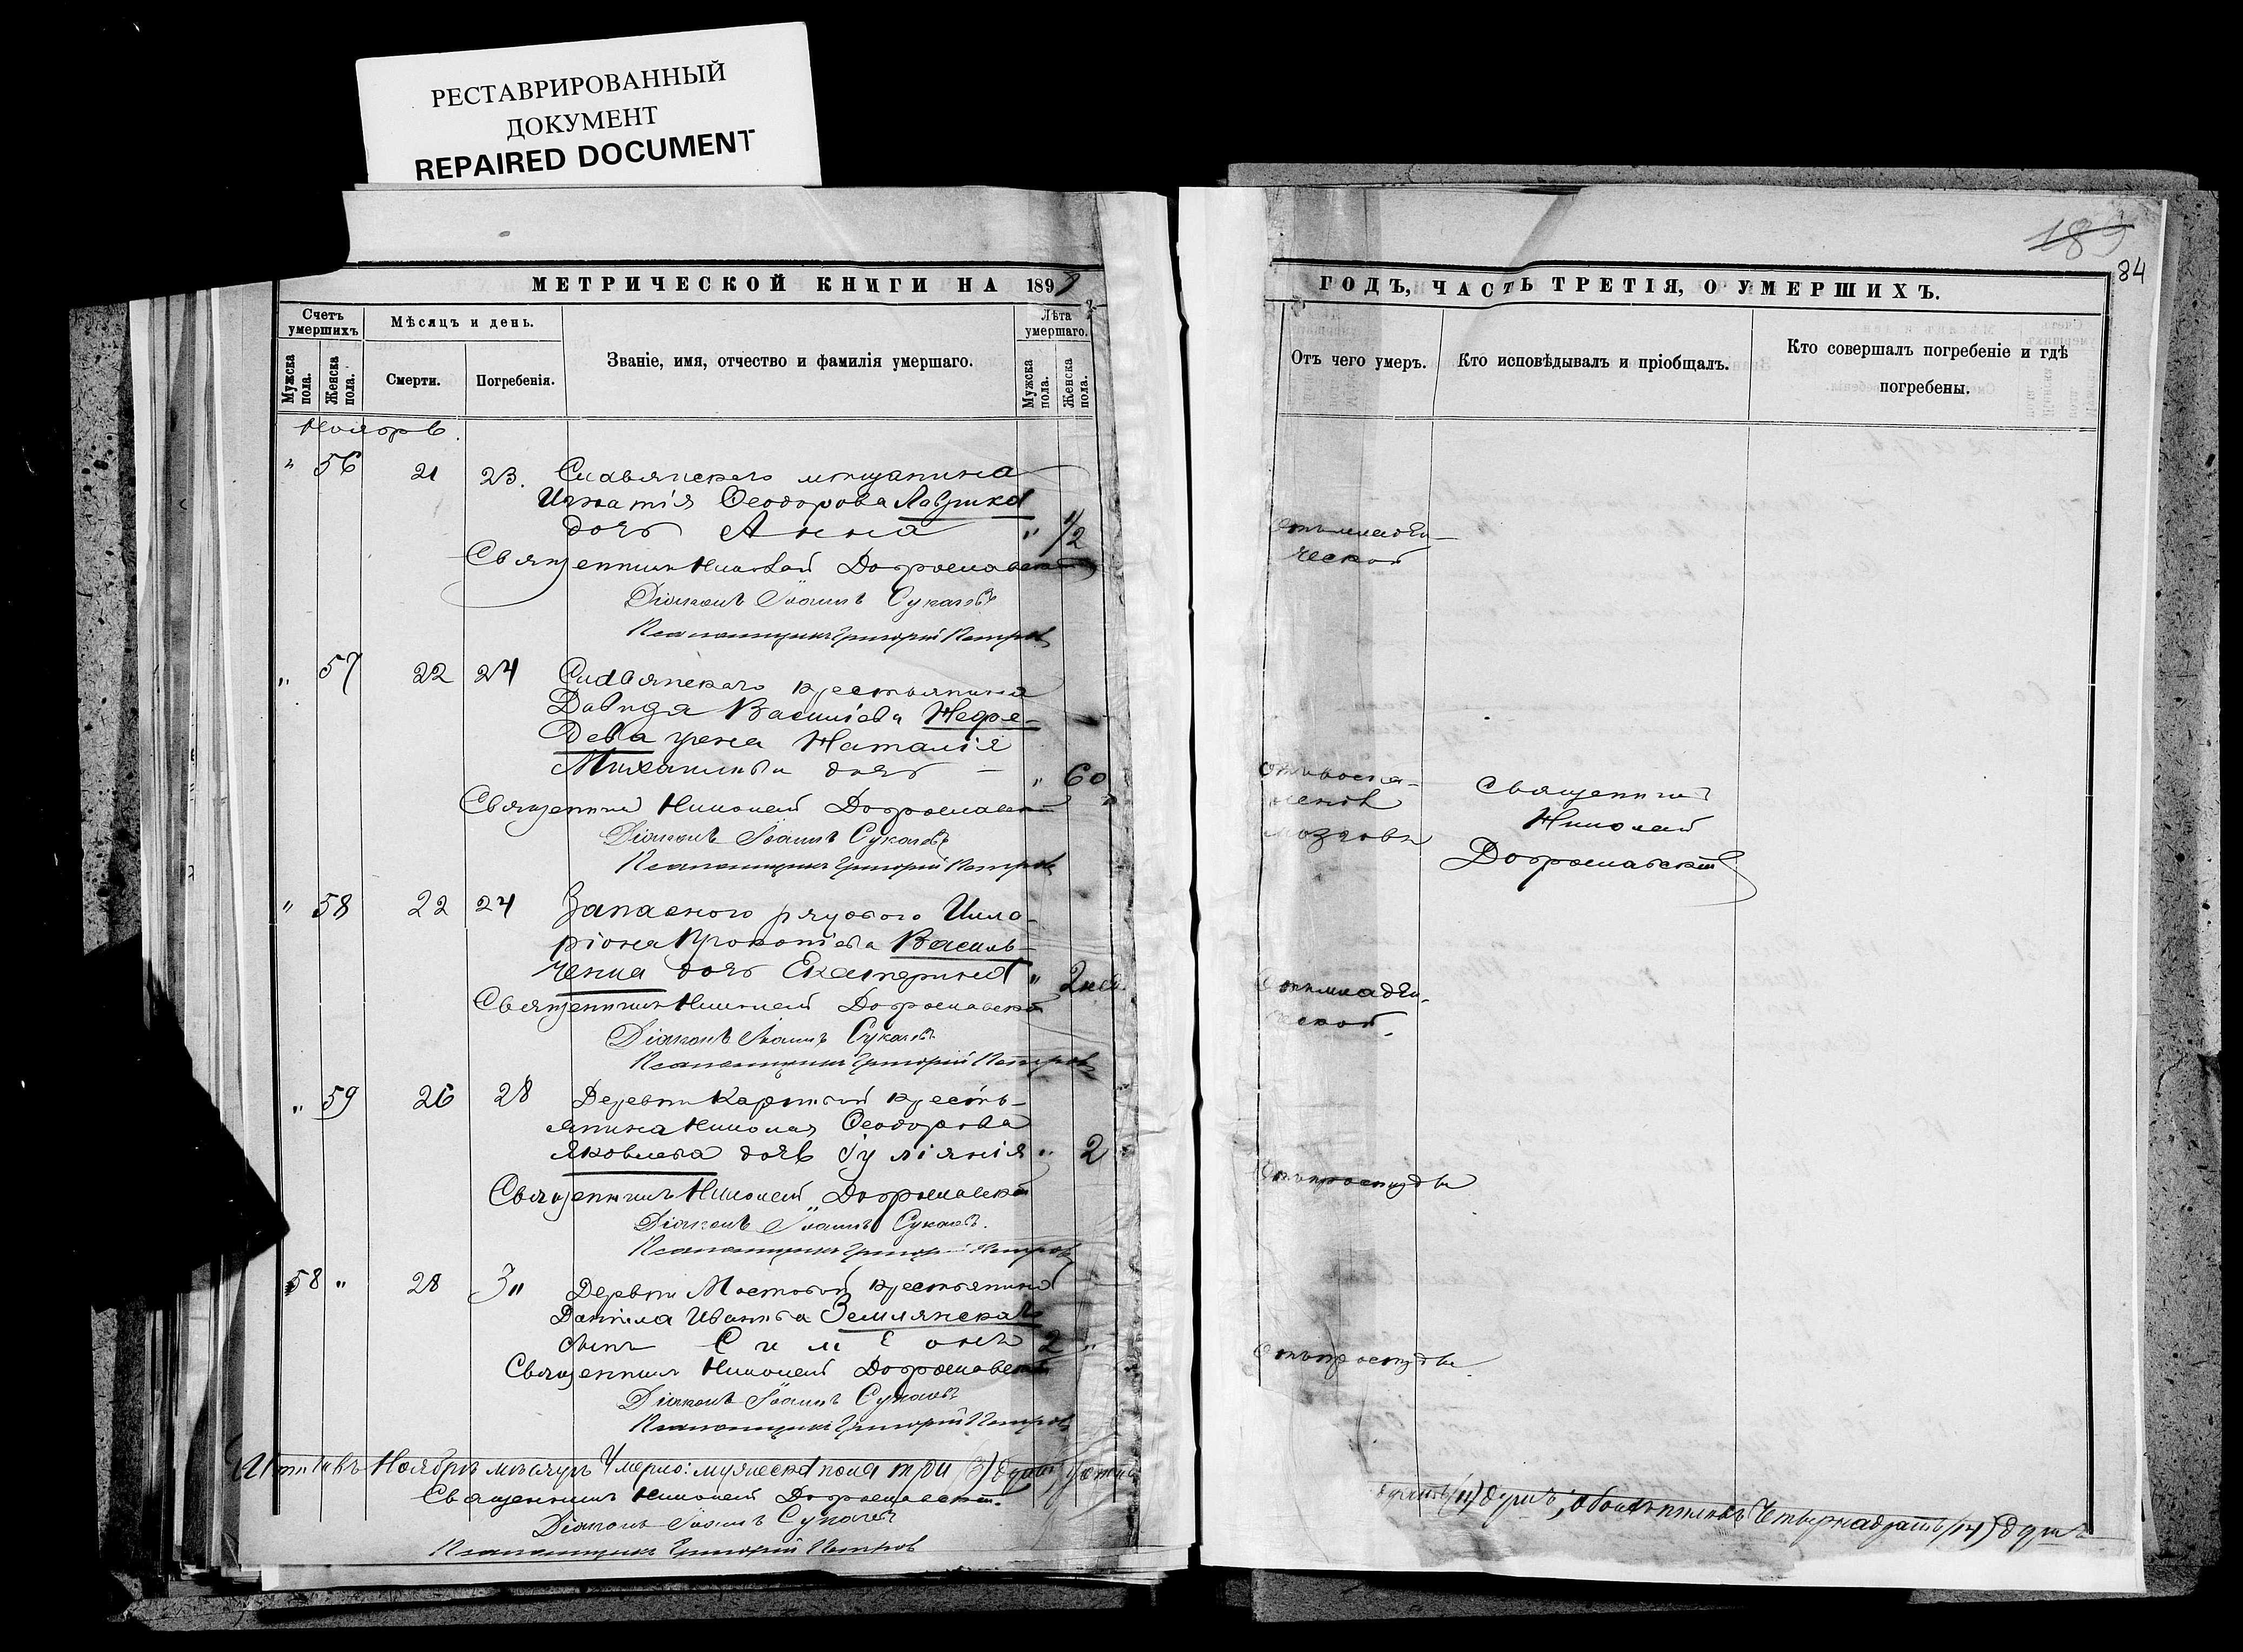 РЕСТАВРИРОВАННЫЙ
ДОКУМЕНТ
REPAIRED DOCUMENT
МЕТРИЧЕСКОЙ КНИГИ НА 189
Счетъ умершихъ
Мѣсяцъ и день.
Званіе, имя, отчество и фамилія умершаго.
Лѣта умершаго.
Мужска пола.
Женска пола.
Смерти.
Погребенія.
Мужска пола.
Женска пола.
Ноябрь.
" 56 21 23. Славянскаго мѣщанина
Игнатія Ѳеодорова
дочь Анна " 1/2
Священникъ Николай Доброславскій
Діаконъ Іоаннъ Сукачевъ
Псаломщикъ Григорій Петровъ
" 57 22 24 Славянскаго крестьянина
Давида Василіева Нефе-
дева жена Наталія
Михаилова дочь " 60
Священникъ Николай Доброславскій
Діаконъ Іоаннъ Сукачевъ
Псаломщикъ Григорій Петровъ
" 58 22 24 Запаснаго рядового Илла-
ріона Прокопіева Василь-
ченка дочь Екатерина " 2 нед.
Священникъ Николай Доброславскій
Діаконъ Іоаннъ Сукачевъ
Псаломщикъ Григорій Петровъ
" 59 26 28 Деревни кресть-
янина Николая Ѳеодорова
Яковлева дочь Іуліанія " 2
Священникъ Николай Доброславскій
Діаконъ Іоаннъ Сукачевъ.
Псаломщикъ Григорій Петровъ
58 " 28 3" Деревни крестьянина
Даніила Иванова Землянска
сынъ Симеонъ 2 "
Священникъ Николай Доброславскій
Діаконъ Іоаннъ Сукачевъ
Псаломщикъ Григорій Петровъ
Ноябрѣ мѣсяцѣ умерло: мужеска пола три (3) души,
Священникъ Николай Доброславскій.
Діаконъ Іоаннъ Сукачевъ
Псаломщикъ Григорій Петровъ
189
84
ГОДЪ, ЧАСТЬ ТРЕТІЯ, О УМЕРШИХЪ.
Отъ чего умеръ.
Кто исповѣдывалъ и пріобщалъ.
Кто совершалъ погребеніе и гдѣ погребены.
Отъ младен-
ческой
Отъ воспа-
ленія
мозговъ
Священникъ
Николай
Доброславскій
Отъ младен-
ческой.
Отъ простуды
Отъ простуды.
(11) душъ, обоего пола четырнадцать (14) душъ